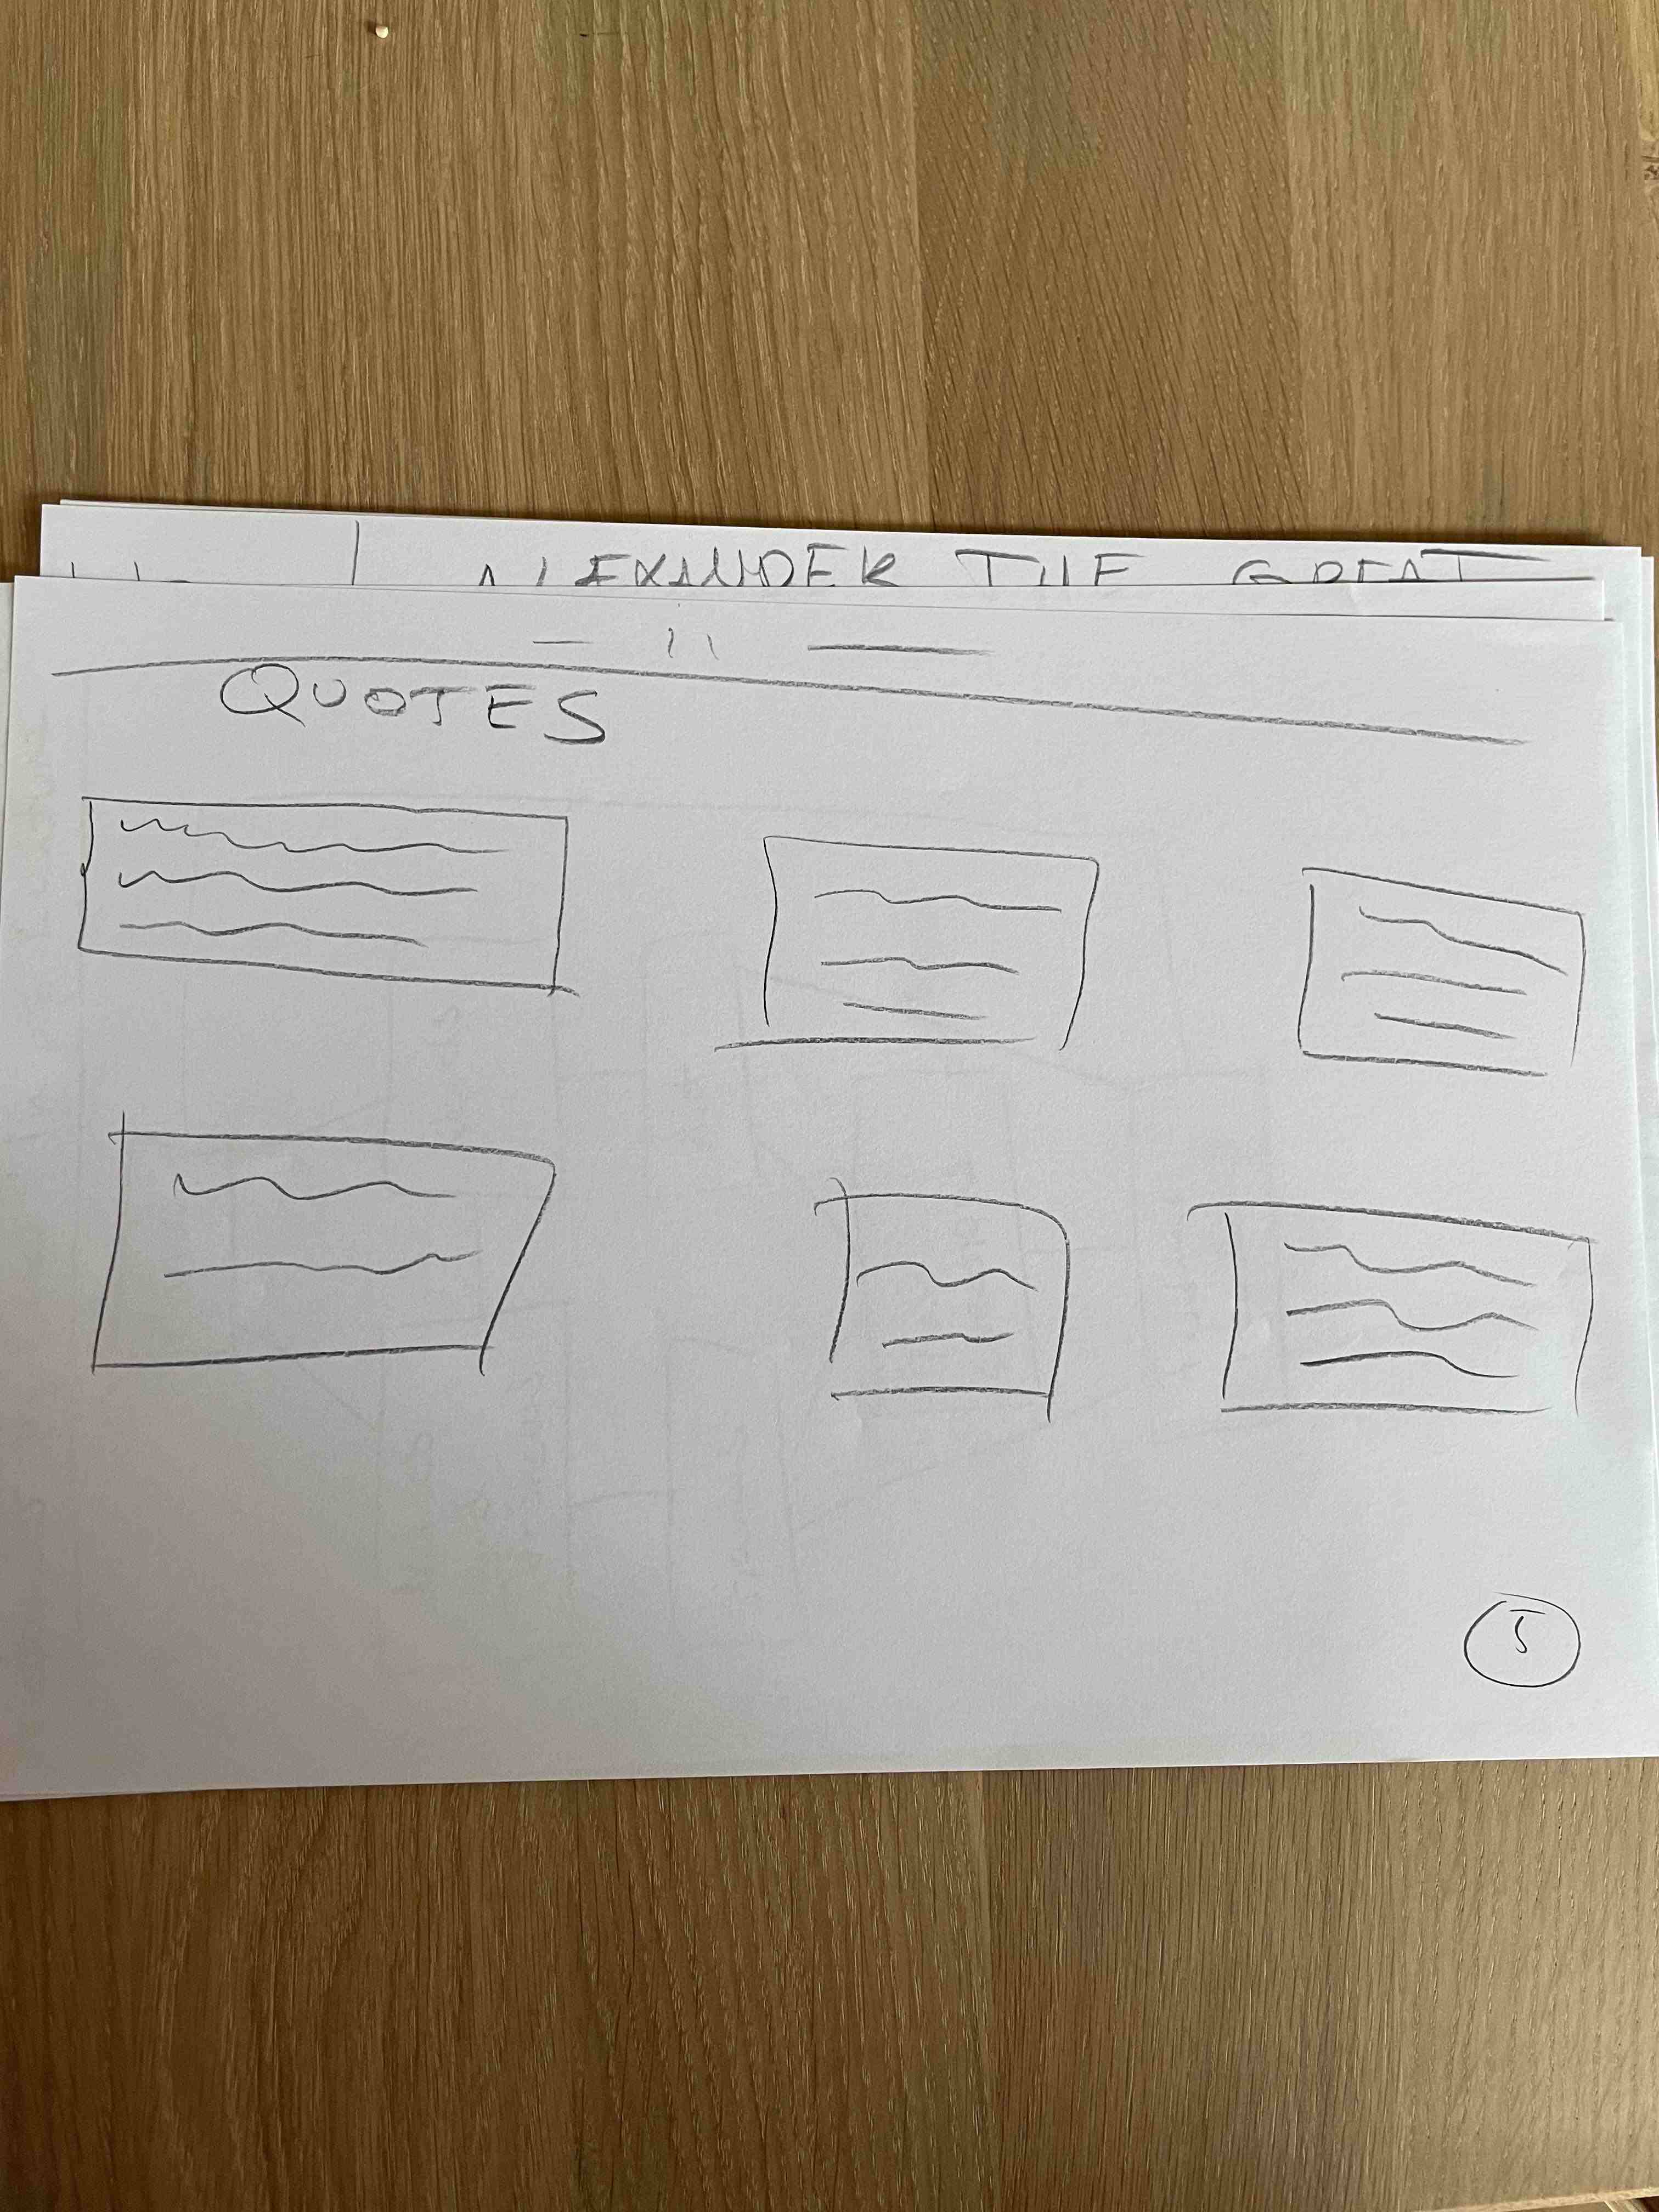 ALEXANDER THE GREAT
— 11 ——
QUOTES
5